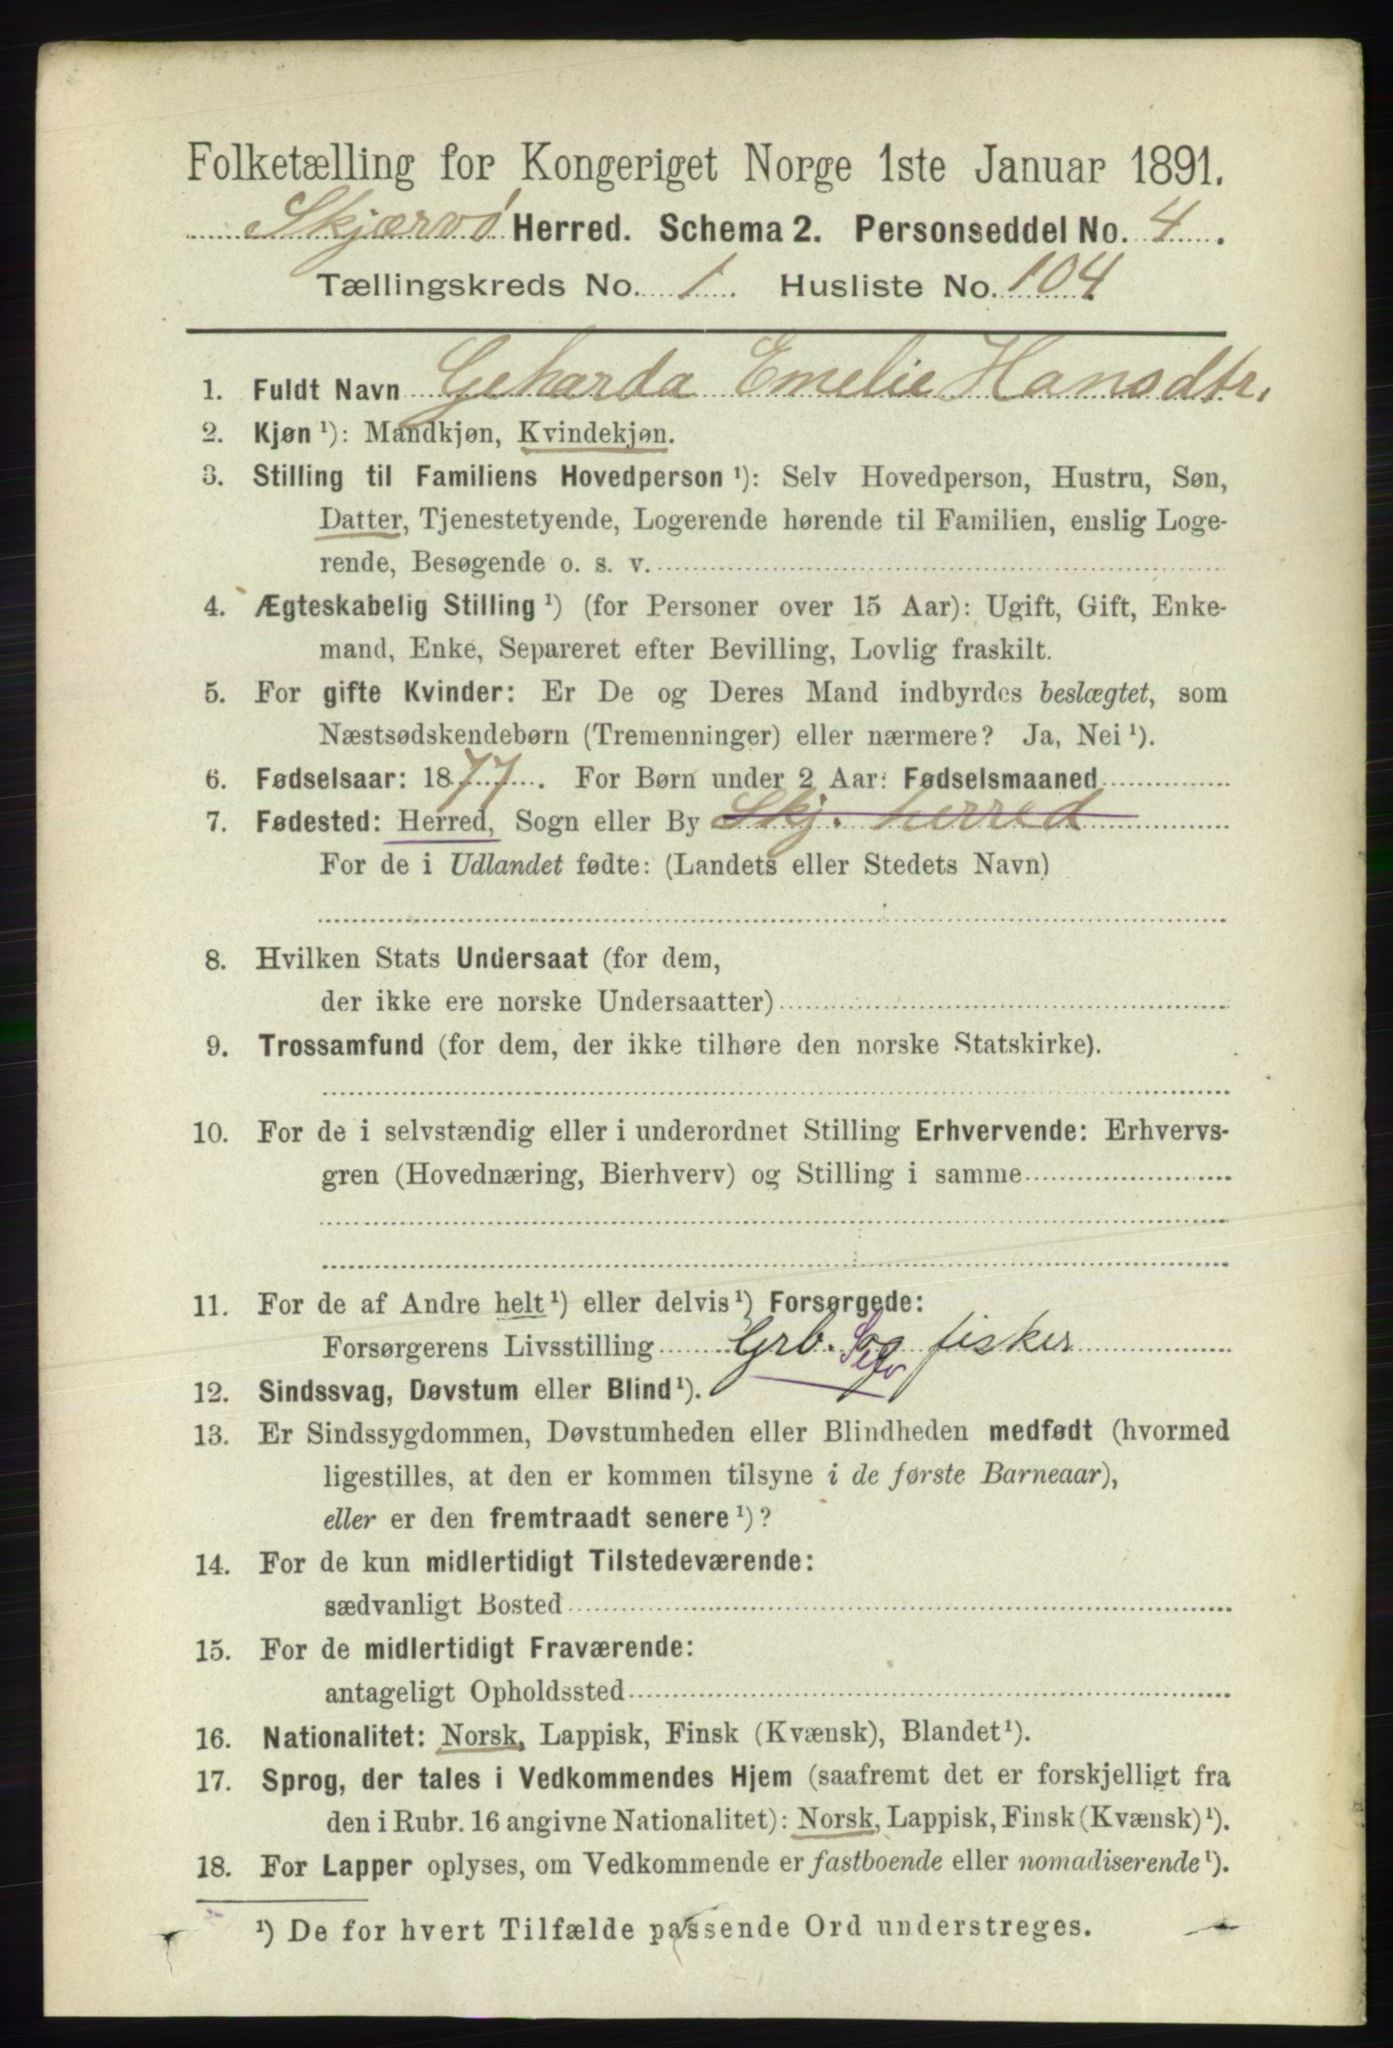 Folketælling for Kongeriget Norge 1ste Januar 1891.
Skjærvö Herred. Schema 2. Personseddel No. 4.
Tællingskreds No. 1. Husliste No. 104.
1. Fuldt Navn Geharda Emelie Hansdtr.
2. Kjøn ¹): Mandkjøn, Kvindekjøn.
3. Stilling til Familiens Hovedperson ¹): Selv Hovedperson, Hustru, Søn,
Datter, Tjenestetyende, Logerende hørende til Familien, enslig Loge-
rende, Besøgende o. s. v.
4. Ægteskabelig Stilling ¹) (for Personer over 15 Aar): Ugift, Gift, Enke-
mand, Enke, Separeret efter Bevilling, Lovlig fraskilt.
5. For gifte Kvinder: Er De og Deres Mand indbyrdes beslægtet, som
Næstsødskendebørn (Tremenninger) eller nærmere? Ja, Nei ¹).
6. Fødselsaar: 1877. For Børn under 2 Aar: Fødselsmaaned
7. Fødested: Herred, Sogn eller By Skj. herred
For de i Udlandet fødte: (Landets eller Stedets Navn)
8. Hvilken Stats Undersaat (for dem,
der ikke ere norske Undersaatter)
9. Trossamfund (for dem, der ikke tilhøre den norske Statskirke).
10. For de i selvstændig eller i underordnet Stilling Erhvervende: Erhvervs-
gren (Hovednæring, Bierhverv) og Stilling i samme
11. For de af Andre helt ¹) eller delvis ¹) Forsørgede:
Forsørgerens Livsstilling Grb. og fisker
Selv
12. Sindssvag, Døvstum eller Blind ¹).
13. Er Sindssygdommen, Døvstumheden eller Blindheden medfødt (hvormed
ligestilles, at den er kommen tilsyne i de første Barneaar),
eller er den fremtraadt senere ¹)?
14. For de kun midlertidigt Tilstedeværende:
sædvanligt Bosted
15. For de midlertidigt Fraværende:
antageligt Opholdssted
16. Nationalitet: Norsk, Lappisk, Finsk (Kvænsk), Blandet ¹).
17. Sprog, der tales i Vedkommendes Hjem (saafremt det er forskjelligt fra
den i Rubr. 16 angivne Nationalitet): Norsk, Lappisk, Finsk (Kvænsk) ¹).
18. For Lapper oplyses, om Vedkommende er fastboende eller nomadiserende ¹).
¹) De for hvert Tilfælde passende Ord understreges.